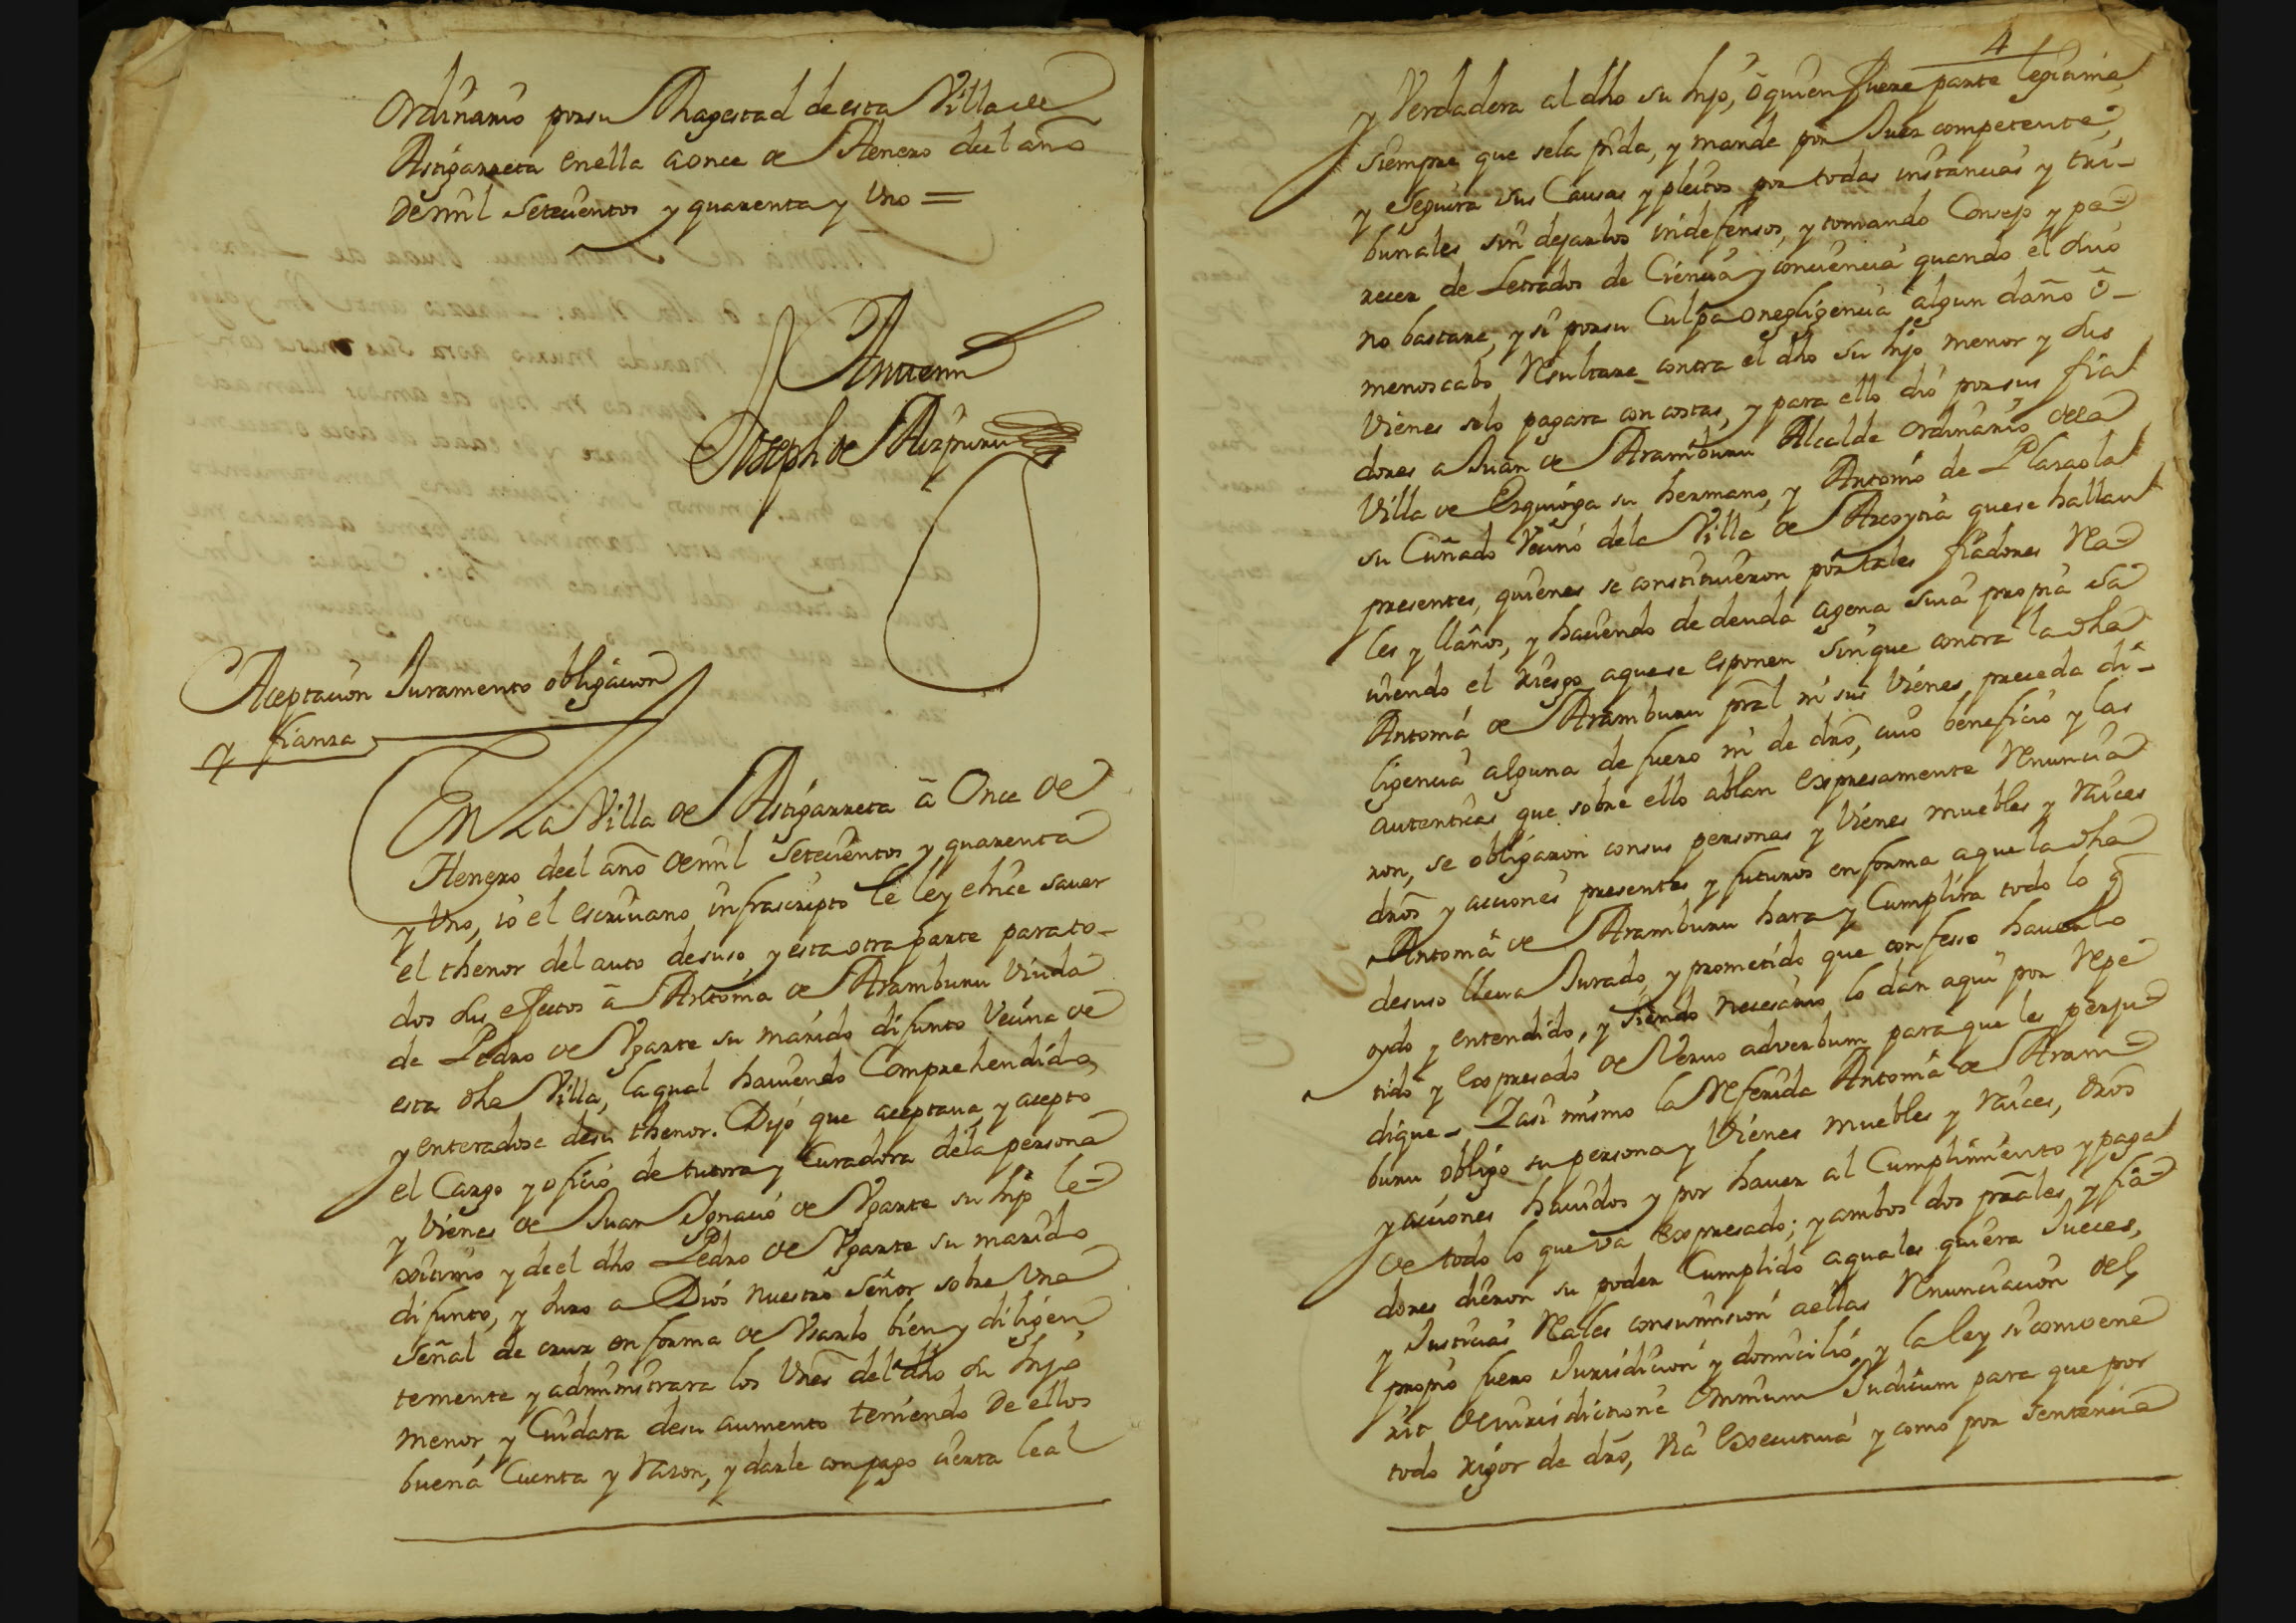 Ordinario por su Magestad de esta Villa de
Astigarreta en ella a once de Henero del año
de mil setecientos y quarenta y uno =
Ante mi
Joseph de Aizpuru
Aceptacion Juramento obligacion
y fianza
En La Villa de Astigarreta â Once de
Henero deel año de mil setecientos y quarenta
y uno, io el escrivano infrascripto le ley e hice saver
el thenor del auto desuso, y esta otra parte para to-
dos sus efectos â Antonia de Aramburu viuda
de Pedro de Ygarte su marido difunto vecina de
esta dha Villa, la qual haviendo Comprehendido,
y enteradose desu thenor. Dijo que aceptava, y acepto
el Cargo y oficio de tutora y Curadora dela persona
y vienes de Juan Ignacio de Ygarte su hijo le-
xitimo y deel dho Pedro de Ygarte su marido
difunto, y Juro a Dios nuestro Señor sobre una
señal de cruz en forma de Usarlo bien y diligen
temente y administrara los vnes del dho su hijo
menor, y Cuidara desu aumento teniendo de ellos
buena Cuenta y razon, y darle con pago cierta leal
4
y Verdadera al dho su hijo, ô quien fuere parte legitima,
siempre que sela pida, y mande por Juez competente,
y seguira sus Causas y pleitos por todas instancias y tri-
bunales sin dejarlos indefensos, y tomando Consejo y pa
recer de Letrados de Ciencia y conciencia quando el suio
no bastare, y si por su Culpa o negligencia algun daño ô-
menoscabo Resultare contra el dho su hijo menor y sus
Vienes selo pagara con costas, y para ello dió por sus fia
dores a Juan de Aramburu Alcalde ordinario dela
Villa de Ezquioga su hermano, y Antonio de Plazaola
su Cuñado Vecino dela Villa de Azcoytia que se hallan
presentes, quienes se constituieron por tales fiadores Rea
les y llanos, y haciendo de deuda agena suia propia sa
viendo el riesgo aque se esponen sin que contra la dha
Antonia de Aramburu pral ni sus vienes preceda di-
ligencia alguna de fuero ni de dro, cuio beneficio y las
autenticas que sobre ello ablan expresamente Renuncia
ron, se obligaron consus personas y vienes muebles y raices
dros y acciones presentes y futuros en forma aque la dha
Antonia de Aramburu hara y Cumplira todo lo q̃
desuso lleva Jurado, y prometido que confeso haverlo
oydo y entendido, y siendo necesario lo dan aqui por repe
tido y expresado de Vervo adverbum para que les perju
dique - Y asi mismo la Referida Antonia de Aram
buru obligo su persona y Vienes muebles y raices, dros
y acciones havidos y por haver al Cumplimiento y paga
de todo lo que va expresado; y ambos dos prales y fia
dores dieron su poder Cumplido aquales quiera Jueces,
y Justicias Reales consumision aellas Renunciacion del
propio fuero Jurisdicion y domicilio, y la ley si convene
rit de iurisdictione Omnium Judicum para que por
todo rigor de dro, via executiva y como por sentencia